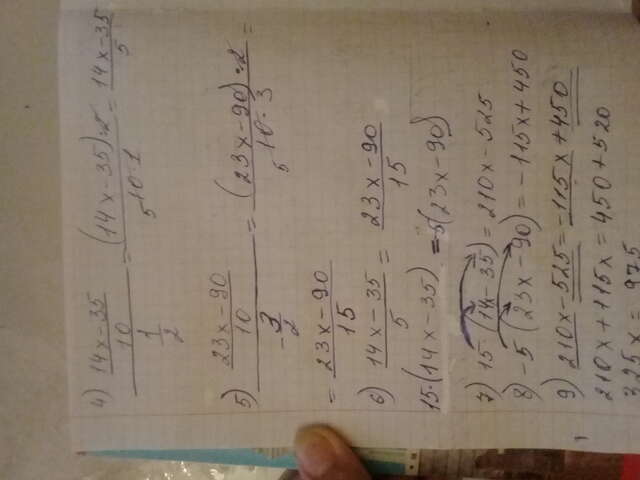 4) ((14x-35)/10)/(1/2) = ((14x-35)·2)/(10·1) 5 = (14x-35)/5
5) ((23x-90)/10)/(-3/2) = ((23x-90)·2)/(10·3) 5 =
= (23x-90)/15
6) (14x-35)/5 = (23x-90)/15
15·(14x-35) = -5(23x-90)
7) 15·(14x-35) = 210x-525
8) -5(23x-90) = -115x+450
9) 210x-525 = -115x+450
210x+115x = 450+520
325x = 975